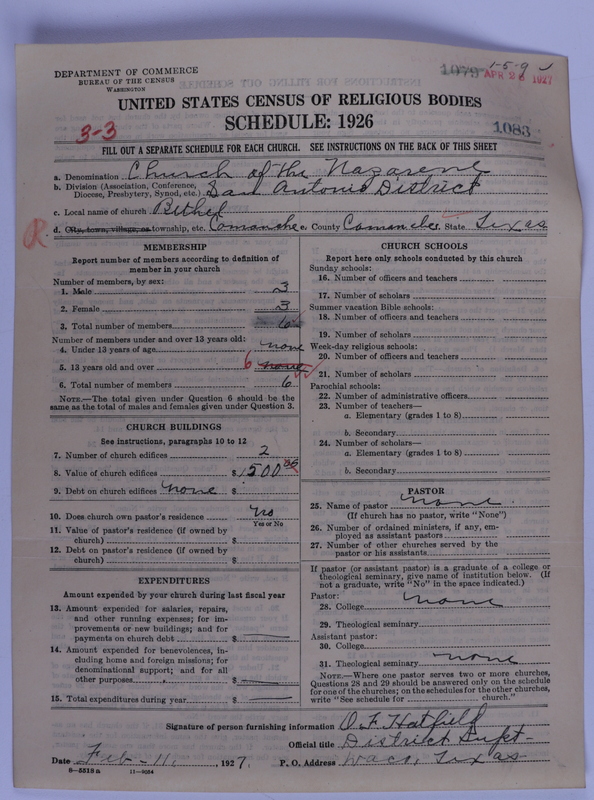 DEPARTMENT OF COMMERCE
BUREAU OF THE CENSUS
WASHINGTON
1079
1-5-9
APR 26 1927
UNITED STATES CENSUS OF RELIGIOUS BODIES
3-3
SCHEDULE: 1926
1083
FILL OUT A SEPARATE SCHEDULE FOR EACH CHURCH. SEE INSTRUCTIONS ON THE BACK OF THIS SHEET
a. Denomination Church of the Nazarene
b. Division (Association, Conference, Diocese, Presbytery, Synod, etc.) San Antonio District
c. Local name of church Bethel
R. d. City, town, village, or township, etc. Comanche e. County Comanche State Texas
MEMBERSHIP
Report number of members according to definition of
member in your church
Number of members, by sex:
1. Male 3
2. Female 3
3. Total number of members 6
Number of members under and over 13 years old:
4. Under 13 years of age none
5. 13 years old and over 6 none
6. Total number of members 6
NOTE.—The total given under Question 6 should be the
same as the total of males and females given under Question 3.
CHURCH BUILDINGS
See instructions, paragraphs 10 to 12
7. Number of church edifices 2
8. Value of church edifices $1500
9. Debt on church edifices none $
10. Does church own pastor's residence No
Yes or No
11. Value of pastor's residence (if owned by
church) $
12. Debt on pastor's residence (if owned by
church) $
EXPENDITURES
Amount expended by your church during last fiscal year
13. Amount expended for salaries, repairs,
and other running expenses; for im-
provements or new buildings; and for
payments on church debt $
14. Amount expended for benevolences, in-
cluding home and foreign missions; for
denominational support; and for all
other purposes $
15. Total expenditures during year $
CHURCH SCHOOLS
Report here only schools conducted by this church
Sunday schools:
16. Number of officers and teachers
17. Number of scholars
Summer vacation Bible schools:
18. Number of officers and teachers
19. Number of scholars
Week-day religious schools:
20. Number of officers and teachers
21. Number of scholars
Parochial schools:
22. Number of administrative officers
23. Number of teachers—
a. Elementary (grades 1 to 8)
b. Secondary
24. Number of scholars—
a. Elementary (grades 1 to 8)
b. Secondary
PASTOR
25. Name of pastor none
(If church has no pastor, write "None")
26. Number of ordained ministers, if any, em-
ployed as assistant pastors
27. Number of other churches served by the
pastor or his assistants
If pastor (or assistant pastor) is a graduate of a college or
theological seminary, give name of institution below. (If
not a graduate, write "No" in the space indicated.)
Pastor:
28. College none
29. Theological seminary
Assistant pastor:
30. College
31. Theological seminary none
NOTE.—Where one pastor serves two or more churches,
Questions 28 and 29 should be answered only on the schedule
for one of the churches; on the schedules for the other churches,
write "See schedule for church."
Signature of person furnishing information O. F. Hatfield
Official title District Supt-
Date Feb-11, 1927. P. O. Address Waco, Texas
8-5518 a 11-9034